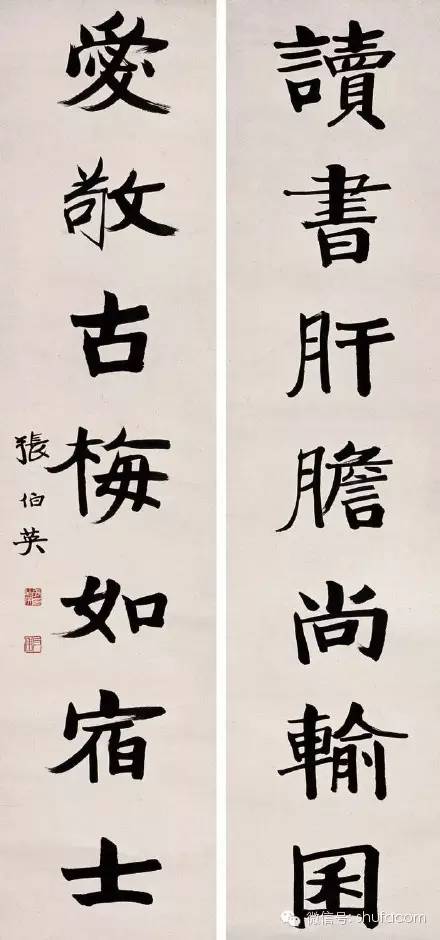 讀書肝膽尚輪囷
愛敬古梅如宿士
張伯英
微信号: shufacom